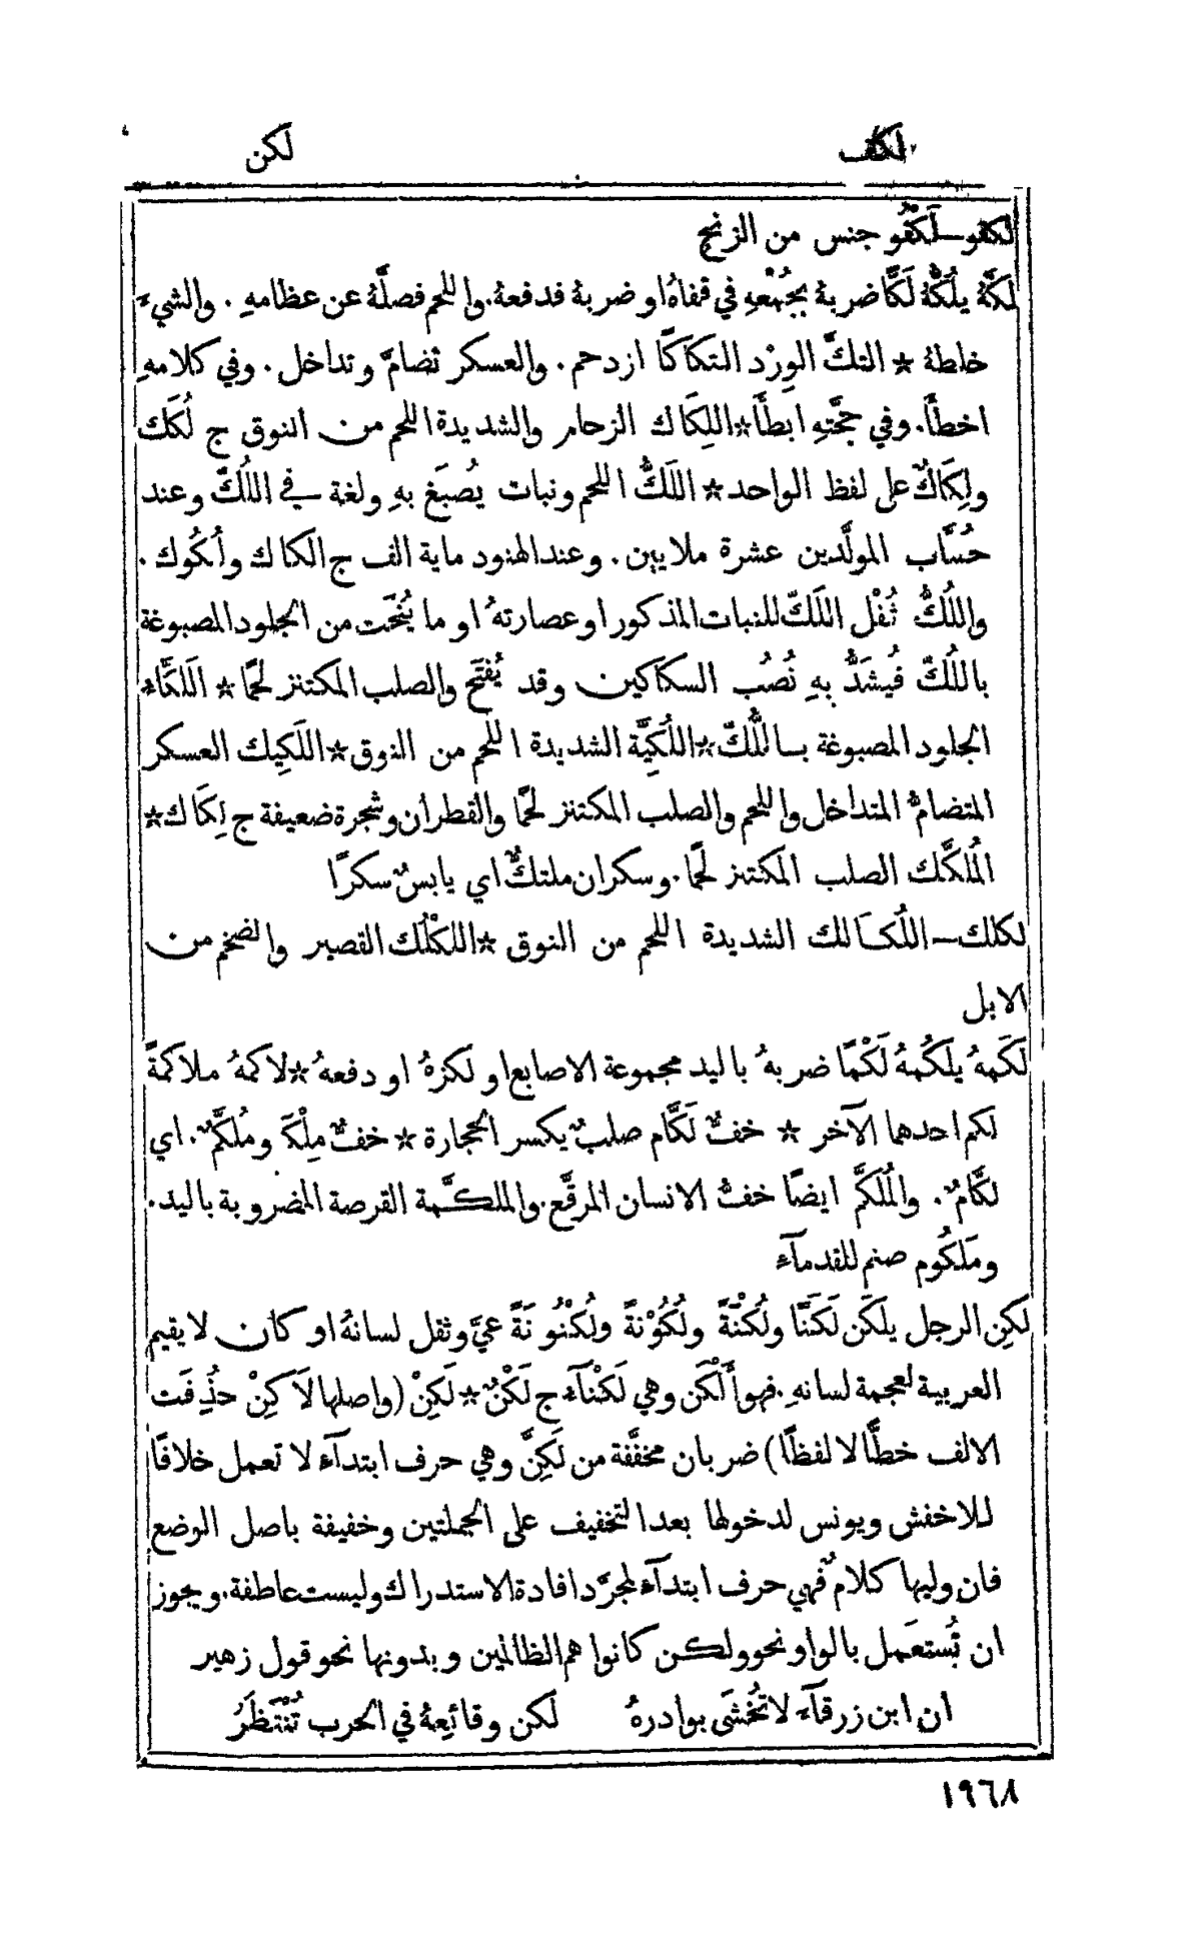 لكف
لكن
لكفو — لَكْفُو جنس من الزنج
لَكَّهُ يلُكُّهُ لَكًّا ضربهُ بجُمْعهِ في قفاهُ او ضربهُ فدفعهُ. واللحم فصلَّهُ عن عظامهِ. والشيءَ
خلطهُ * التكَّ الوِرْد التكاكًا ازدحم. والعسكر تضامَّ وتداخل. وفي كلامهِ
اخطأَ. وفي حجَّتهِ ابطأَ * اللِكَاك الزحام والشديدة اللحم من النوق ج لُكَك
ولِكَاكٌ على لفظ الواحد * اللَكُّ اللحم ونبات يُصبَغ بهِ ولغة في اللُكّ وعند
حُسَّاب المولَّدين عشرة ملايين. وعند الهنود ماية الف ج الكاك وأُلكُوك.
واللُكُّ ثُفْل اللَكّ للنبات المذكور او عصارتهُ او ما يُنحَت من الجلود المصبوغة
باللُكّ فيُشَدُّ بهِ نُصُب السكاكين وقد يُفتَح والصلب المكتنز لحمًا * اللَكَّاء
الجلود المصبوغة باللُّكّ * اللُكِّيَّة الشديدة اللحم من النوق * اللَكِيك العسكر
المتضامُّ المتداخل واللحم والصلب المكتنز لحمًا والقطران وشجرة ضعيفة ج لِكَاك *
المُلكَّك الصلب المكتنز لحمًا. وسكران ملتكٌّ اي يابسٌ سكرًا
لكلك — اللُكَالك الشديدة اللحم من النوق * اللكْلُك القصير والضخم من
الابل
لَكَمهُ يلكُمهُ لَكْمًا ضربهُ باليد مجموعة الاصابع او لكزهُ او دفعهُ * لاكمهُ ملاكمةً
لكم احدهما الآخر * خفٌّ لَكَّام صلبٌ يكسر الحجارة * خفٌّ مِلْكَم ومُلكَّمٌ. اي
لكَّامٌ. والمُلكَّم ايضًا خفُّ الانسان المرقَّع. والملكَّمة القرصة المضروبة باليد.
ومَلكُوم صنم للقدمآء
لَكِن الرجل يلكَن لَكَنًا ولُكْنَةً ولُكُوْنةً ولُكْنُونَةً عيَّ وثقل لسانهُ او كان لا يقيم
العربية لعجمة لسانهِ. فهو أَلْكَن وهي لَكْنآء ج لُكْنٌ * لَكِنْ (واصلها لاَكِنْ حذِفَت
الالف خطًّا لا لفظًا) ضربان مخفَّفة من لَكِنَّ وهي حرف ابتدآء لا تعمل خلافًا
للاخفش ويونس لدخولها بعد التخفيف على الجملتين وخفيفة باصل الوضع
فان وليها كلامٌ فهي حرف ابتدآء لمجرَّد افادة الاستدراك وليست عاطفة. ويجوز
ان تُستعمَل بالواو نحو ولكن كانوا هم الظالمين وبدونها نحو قول زهير
ان ابن زرقآء لا تُخشَى بوادرهُ لكن وقائعهُ في الحرب تُنْتَظَرُ
١٩٦٨